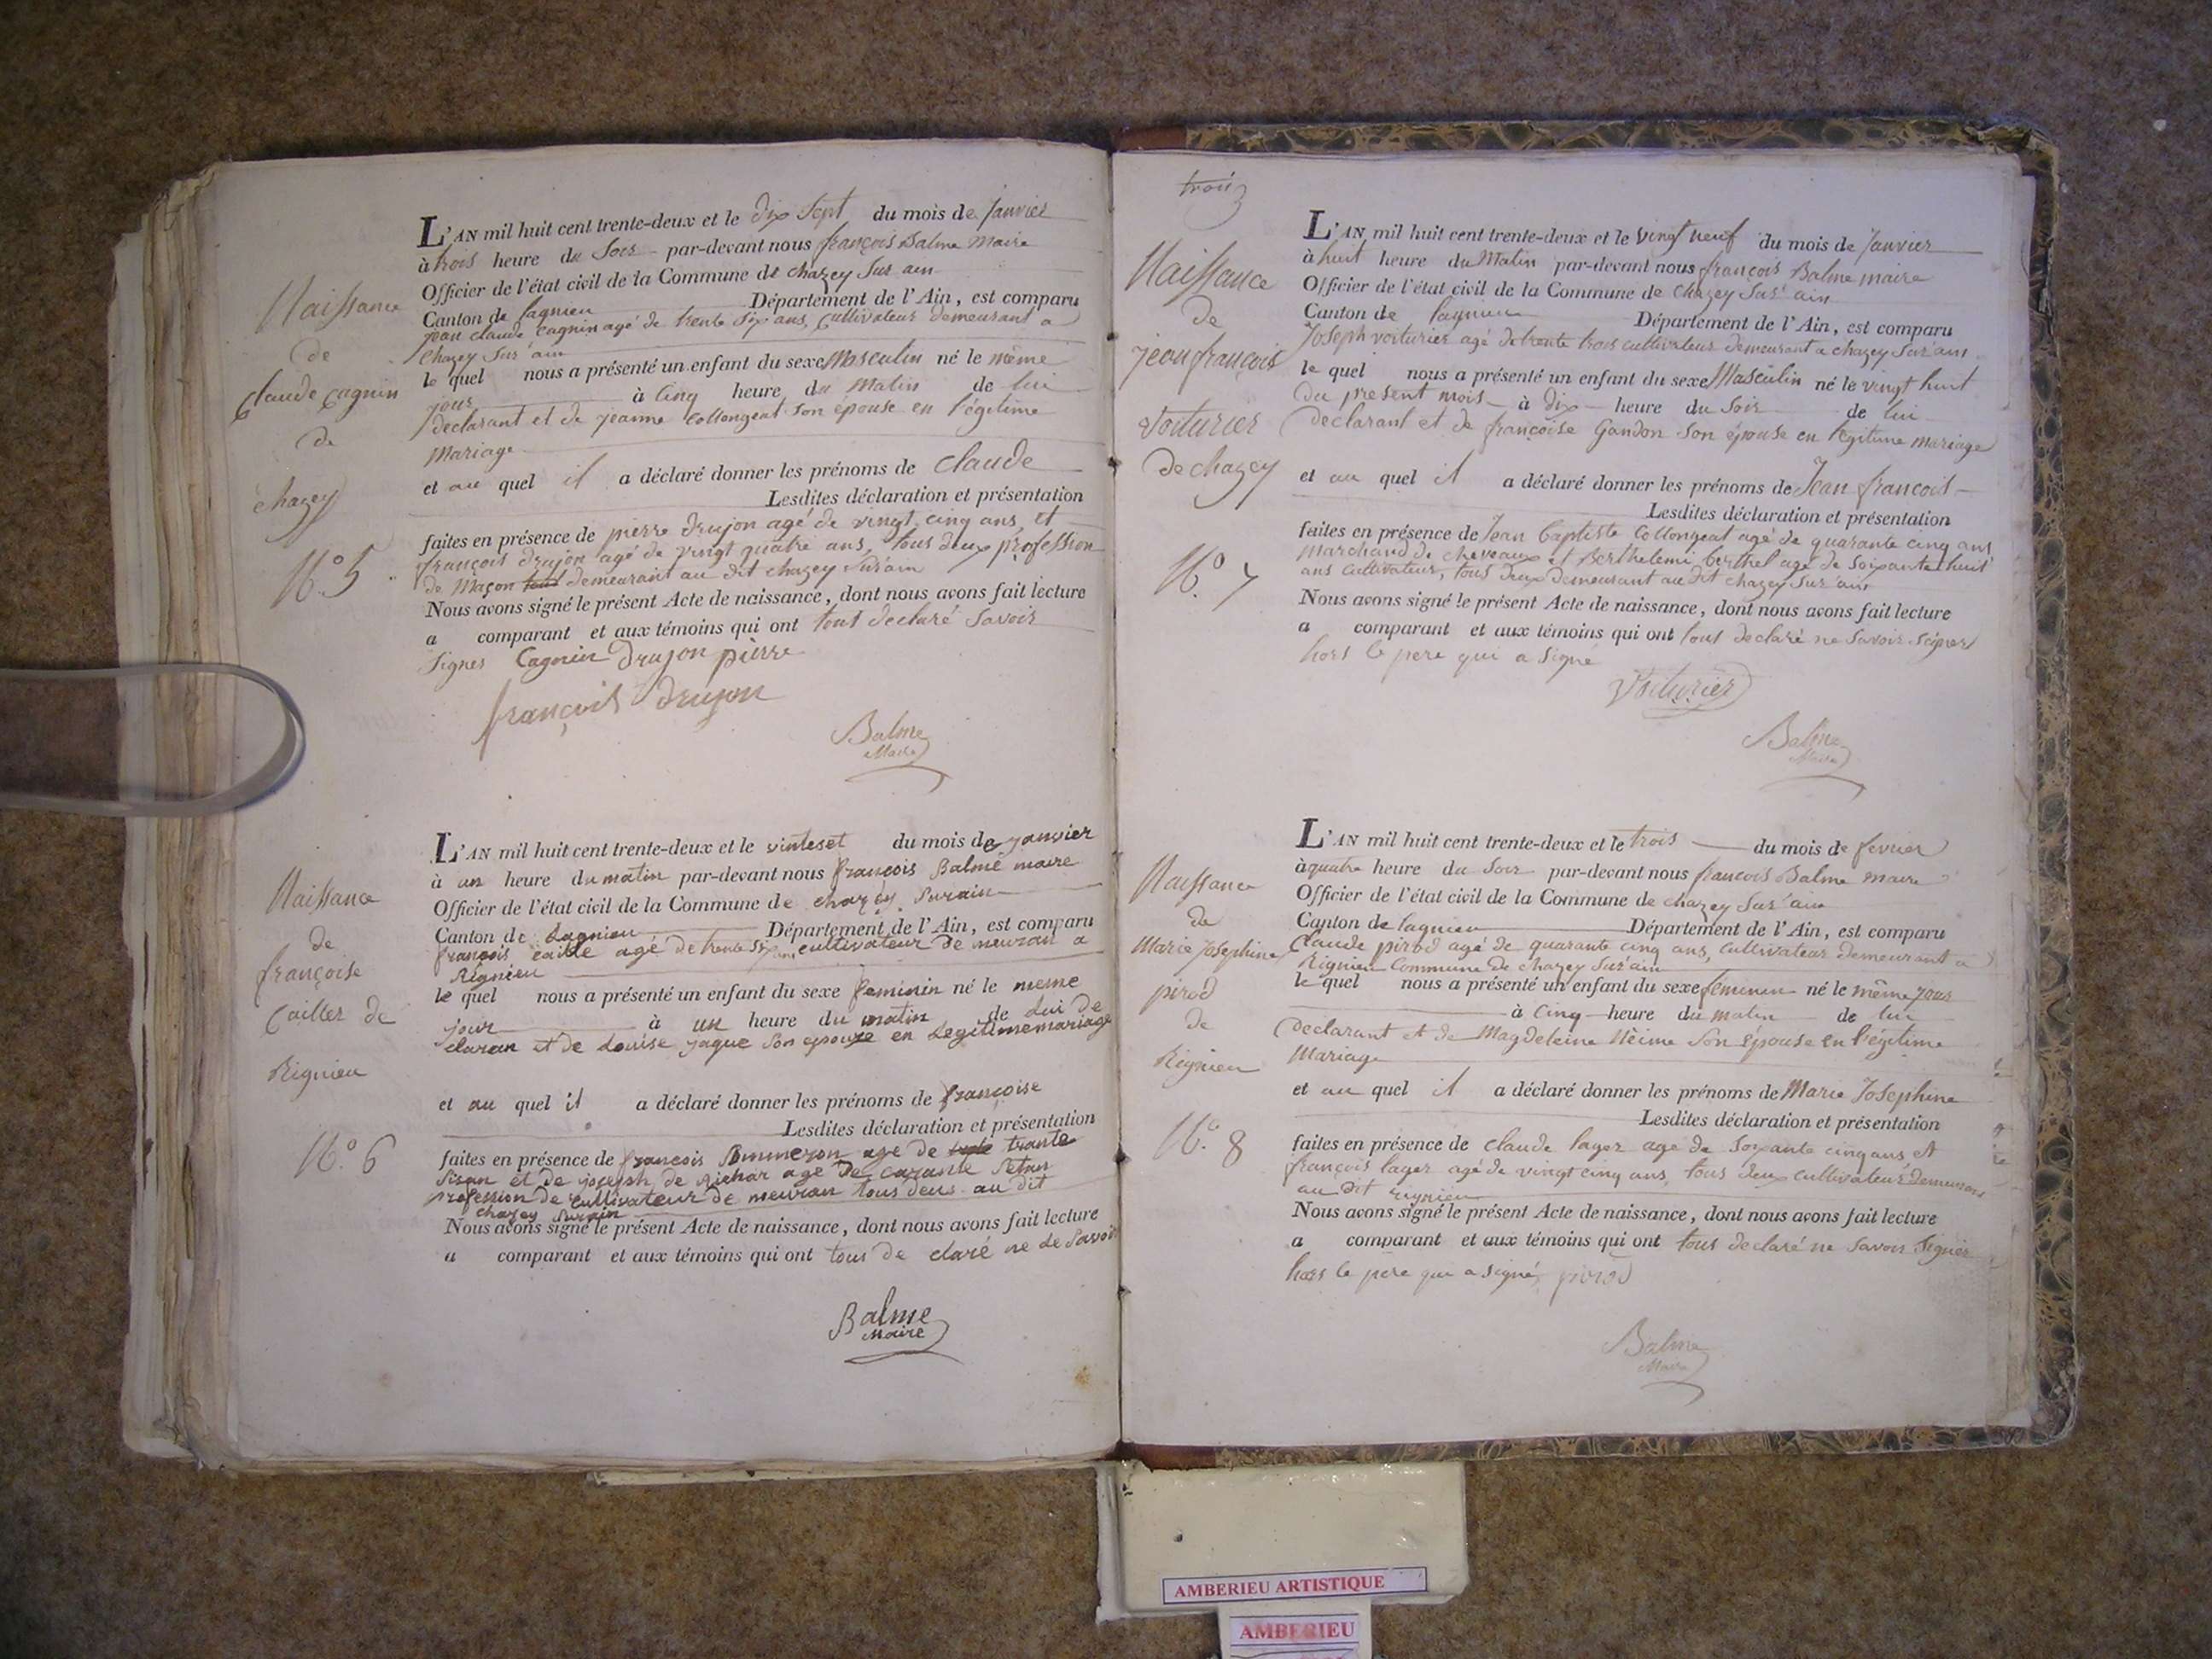 Naissance
de
Claude Cagnin
de
chazey
N.º 5
L'AN mil huit cent trente-deux et le dix sept du mois de Janvier
à trois heure du Soir par-devant nous françois Balme Maire
Officier de l'état civil de la Commune de chazey Sur ain
Canton de Lagnieu Département de l'Ain, est comparu
jean claude Cagnin agé de trente Six ans, Cultivateur demeurant a
Chazey Sur ain
le quel nous a présenté un enfant du sexe Masculin né le même
jour à Cinq heure du Matin de lui
declarant et de jeanne Collongeat Son épouse en légitime
Mariage
et au quel il a déclaré donner les prénoms de Claude
Lesdites déclaration et présentation
faites en présence de pierre drujon agé de vingt cinq ans, et
françois drujon agé de vingt quatre ans, tous deux profession
de Maçon demeurant au dit chazey Sur ain
Nous avons signé le présent Acte de naissance, dont nous avons fait lecture
a comparant et aux témoins qui ont tout declaré Savoir
Signer Cagnin drujon pierre
françois drujon
Balme
Maire
Naissance
de
françoise
Cailler de
Rignieu
N.º 6
L'AN mil huit cent trente-deux et le vinteset du mois de janvier
à un heure du matin par-devant nous françois Balme maire
Officier de l'état civil de la Commune de chazéy Surain
Canton de Lagnieu Département de l'Ain, est comparu
françois caille agé de trente Six ans cultivateur de meuran a
Rignieu
le quel nous a présenté un enfant du sexe feminin né le meme
jour à un heure du matin de Lui de
claran et de Louise jaque Son epouze en Legitimemariage
et au quel il a déclaré donner les prénoms de françoise
Lesdites déclaration et présentation
faites en présence de francois Sommeron age de trante
Sisan et de joseph de Richar age De carante Setan
profession de Cultivateur De meuran tous deus au dit
chazey Surain
Nous avons signé le présent Acte de naissance, dont nous avons fait lecture
a comparant et aux témoins qui ont tous de claré ne de Savoir
Balme
Maire
trois
Naissance
de
jean françois
Voiturier
de chazey
N.º 7
L'AN mil huit cent trente-deux et le vingt neuf du mois de Janvier
à huit heure du Matin par-devant nous françois Balme maire
Officier de l'état civil de la Commune de Chazey Sur ain
Canton de Lagnieu Département de l'Ain, est comparu
Joseph voiturier agé de trente trois cultivateur demeurant a chazey Sur ain
le quel nous a présenté un enfant du sexe Masculin né le vingt huit
du present mois à dix heure du Soir de lui
declarant et de françoise Gandon Son épouse en légitime mariage
et au quel il a déclaré donner les prénoms de Jean francois
Lesdites déclaration et présentation
faites en présence de Jean Baptiste Collongeat agé de quarante cinq ans
marchand de cheveaux et Berthelemi berthet agé de soixante huit
ans cultivateur, tous deux demeurant au dit chazey Sur ain
Nous avons signé le présent Acte de naissance, dont nous avons fait lecture
a comparant et aux témoins qui ont tous declaré ne Savoir Signer
hors le pere qui a Signé
Voiturier
Balme
Maire
Naissance
de
Marie josephine
pirod
de
Rignieu
N.º 8
L'AN mil huit cent trente-deux et le trois du mois de fevrier
à quatre heure du Soir par-devant nous francois Balme maire
Officier de l'état civil de la Commune de chazey Sur ain
Canton de Lagnieu Département de l'Ain, est comparu
Claude pirod agé de quarante cinq ans, Cultivateur demeurant a
Rignieu Commune de chazey Sur ain
le quel nous a présenté un enfant du sexe feminin né le même jour
à Cinq heure du matin de lui
declarant et de Magdeleine Neime Son épouse en légitime
Mariage
et au quel il a déclaré donner les prénoms de Marie Josephine
Lesdites déclaration et présentation
faites en présence de claude layer agé de Soixante cinq ans et
françois layer agé de vingt cinq ans, tous deux cultivateur demeurant
au dit Rignieu
Nous avons signé le présent Acte de naissance, dont nous avons fait lecture
a comparant et aux témoins qui ont tous declaré ne Savoir Signer
hors le père qui a signé pirod
Balme
Maire
AMBERIEU ARTISTIQUE
AMBERIEU